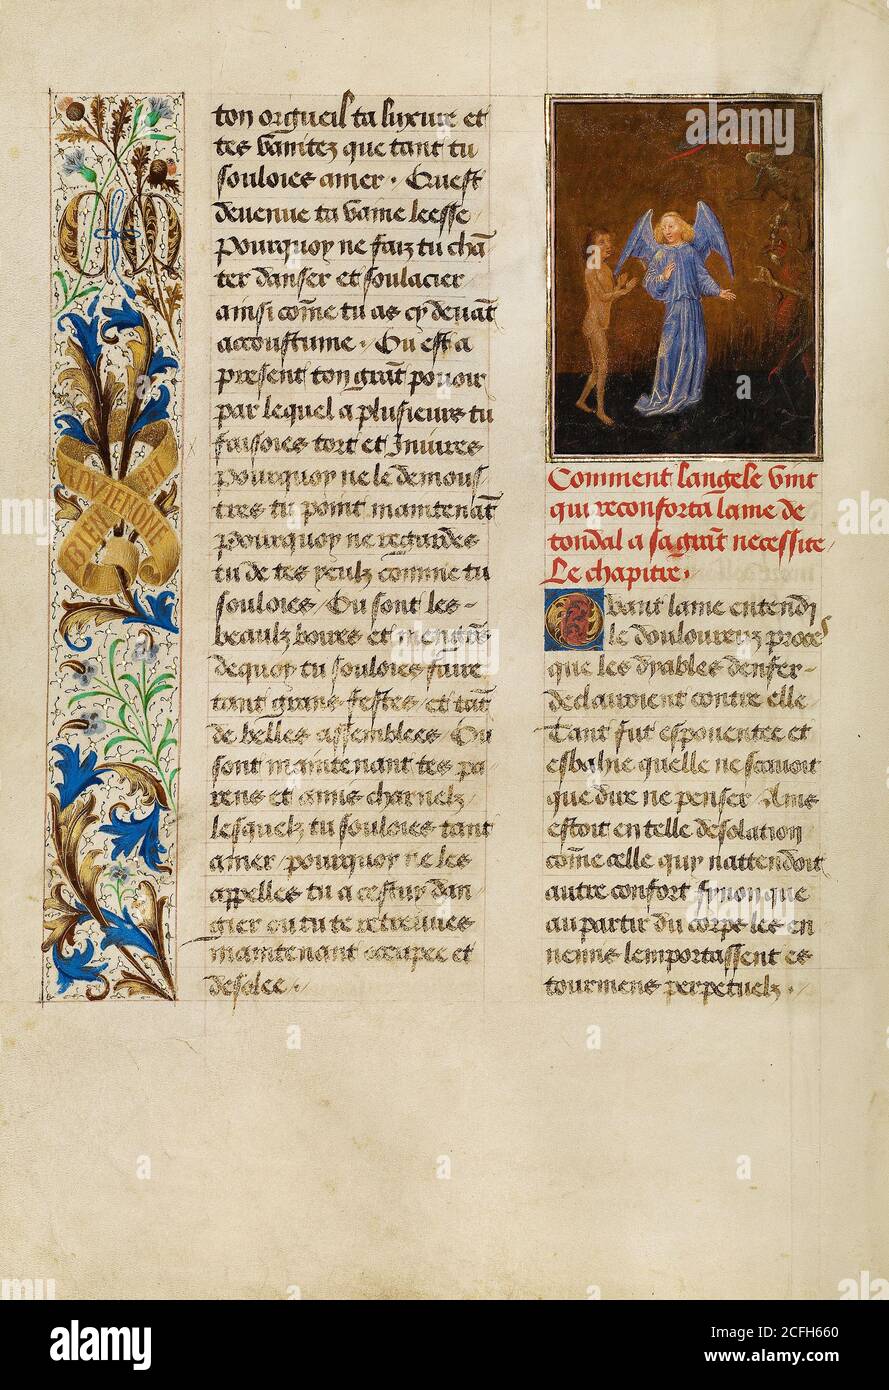 ton orgueil ta luxure et
tes vanitez que tant tu
souloies amer. Quest
devenue ta vaine leesse
Pourquoy ne faiz tu chā
ter danser et soulacier
ainsi cōme tu as cy devāt
accoustume. Ou est a
present ton grāt pouoir
par lequel a plusieurs tu
faisoies tort et Iniures
pourquoy ne le demous
tres tu point maintenāt
pourquoy ne regardes
tu de tes yeulz comme tu
souloies / Ou sont les
beaulz boires et mengiers
de quoy tu souloies faire
tant grans festes et tāt
de belles assemblees / Ou
sont maintenant tes pa
rens et amis charnelz
lesquelz tu souloies tant
amer / pourquoy ne les
appelles tu a cestuy dan
gier ou tu te retreuves
maintenant occupee et
desolee.
BIEN
ADVIENGNE
EN
CM
Comment langele vint
qui reconforta lame de
tondal a sa grāt necessite
Le chapitre.
Quant lame entendi
le douloureuz proces
que les dyables denfer
declauroient contre elle
Tant fut espouentee et
esbahie quelle ne scavoit
que dire ne penser Ains
estoit en telle desolation
cōme celle quy nattendoit
autre confort synon que
au partir du corps les en
nemis lemportassent es
tourmens perpetuelz.
alamy
Image ID: 2CFH660
www.alamy.com